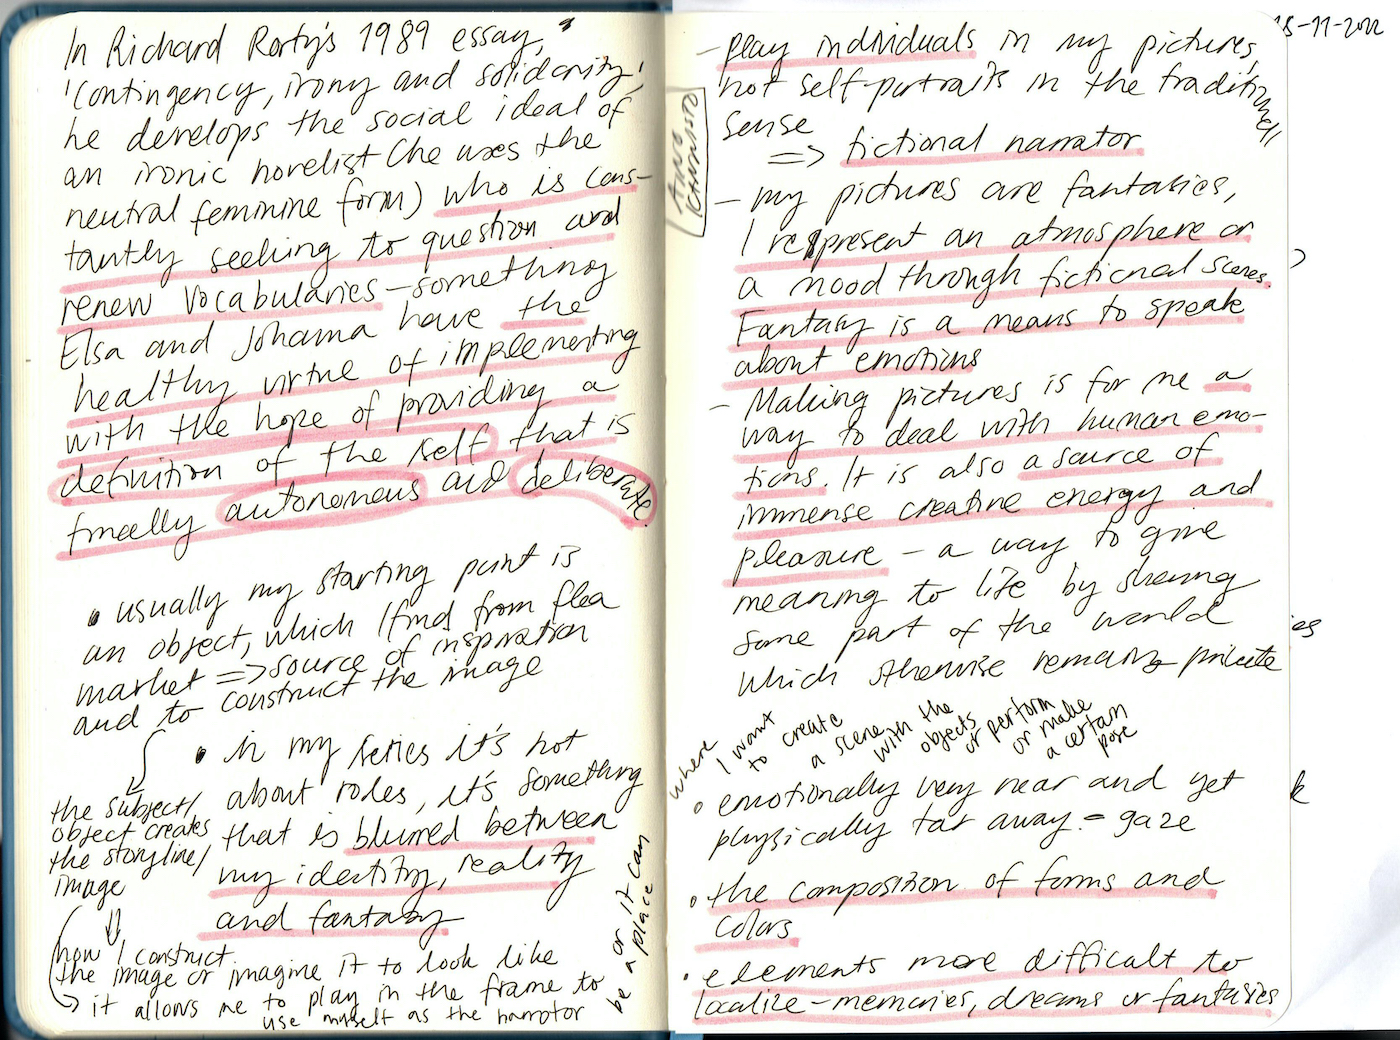 In Richard Rorty's 1989 essay,
'contingency, irony and solidarity'
he develops the social ideal of
an ironic novelist (he uses the
neutral feminine form) who is cons-
tantly seeking to question and
renew vocabularies - something
Elsa and Johanna have the
healthy virtue of implementing
with the hope of providing a
definition of the self that is
finally autonomous and deliberate.
• usually my starting point is
an object, which I find from flea
market => source of inspiration
and to construct the image
the subject/
object creates
the storyline/
image
how I construct
the image or imagine it to look like
it allows me to play in the frame to
use myself as the narrator
be a or it can
be a place
• in my series it's not
about roles, it's something
that is blurred between
my identity, reality
and fantasy
15-11-2022
- play individuals in my pictures,
not self-portraits in the traditional
sense
=> fictional narrator
- my pictures are fantasies,
I represent an atmosphere or
a mood through fictional scenes.
Fantasy is a means to speak
about emotions
- Making pictures is for me a
way to deal with human emo-
tions. It is also a source of
immense creative energy and
pleasure - a way to give
meaning to life by sharing
some part of the world
which otherwise remains private
where I want
to create
a scene
with the
objects
or perform
or make
a certain
pose
• emotionally very near and yet
physically far away = gaze
• the composition of forms and
colors
• elements more difficult to
localize - memories, dreams or fantasies